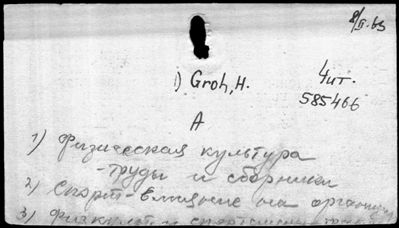 8/II-63
1) Groh, H.
4ит.
585466
А
1) Физическая культура
- труды и сборники
2) Спорт - влияние на организм
3) Физкульт. и спортсмены